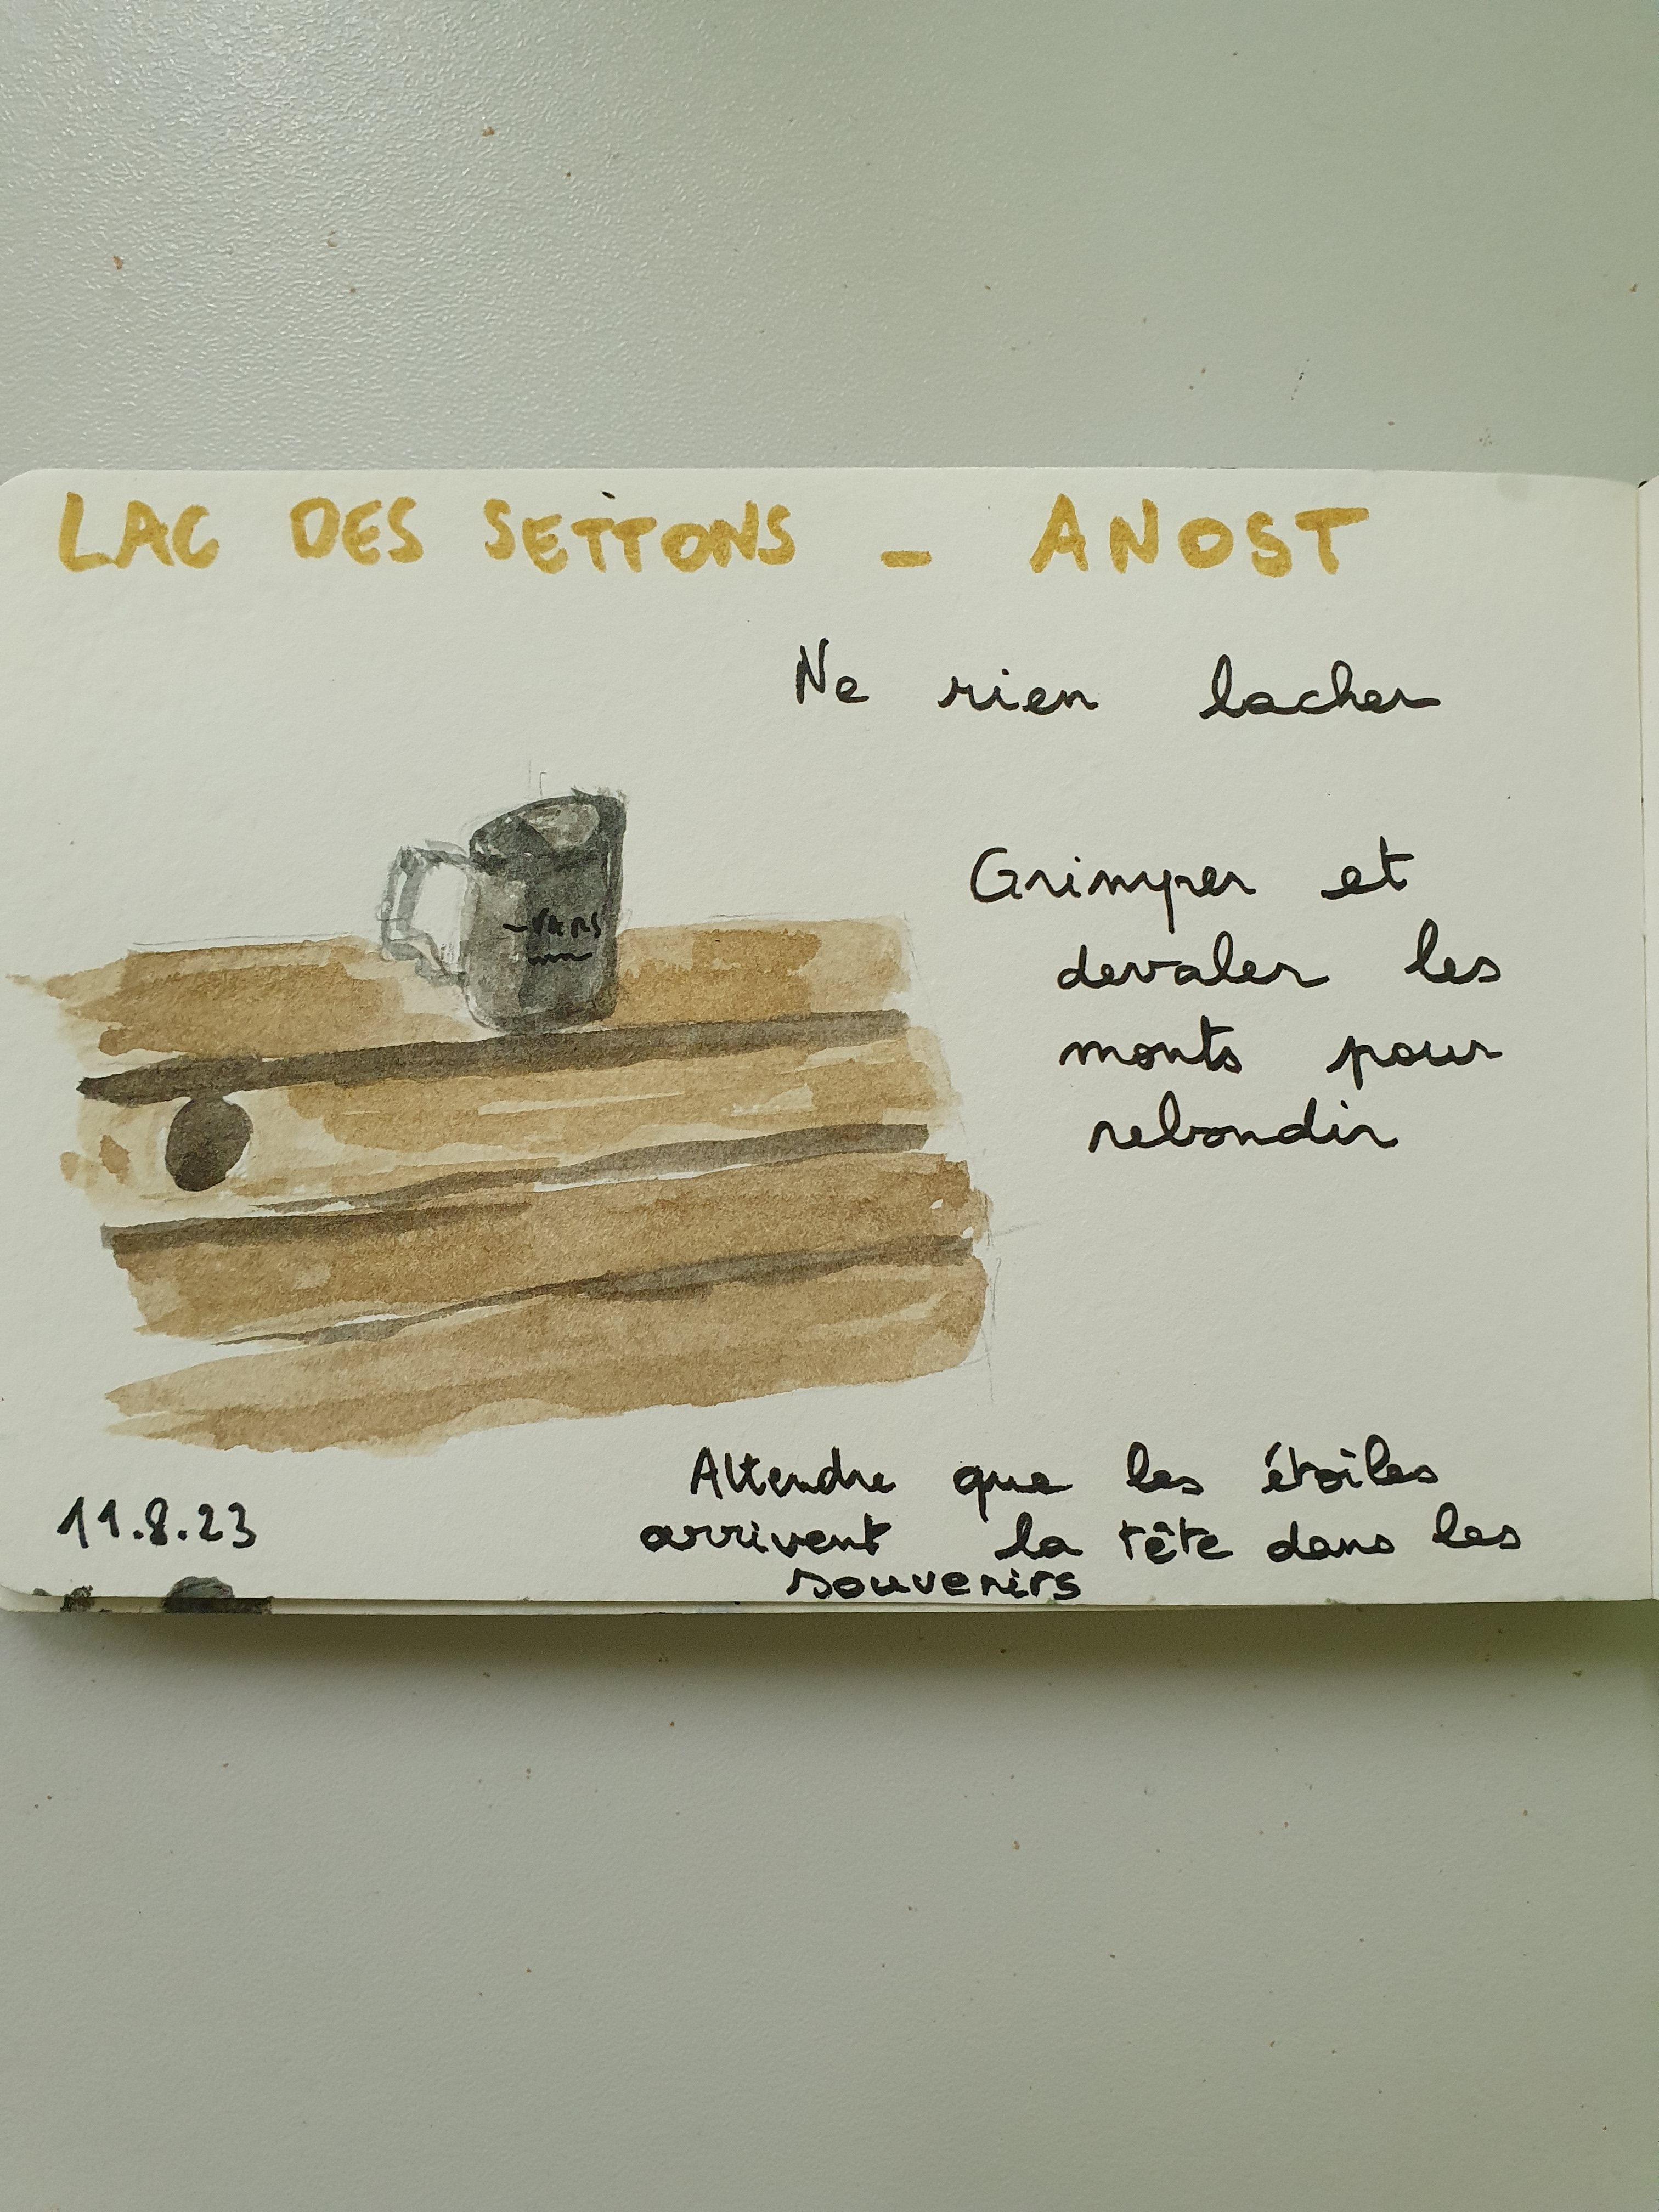 LAC DES SETTONS - ANOST
Ne rien lacher
Grimper et
devaler les
monts pour
rebondir
Attendre que les étoiles
arrivent la tête dans les
souvenirs
11.8.23